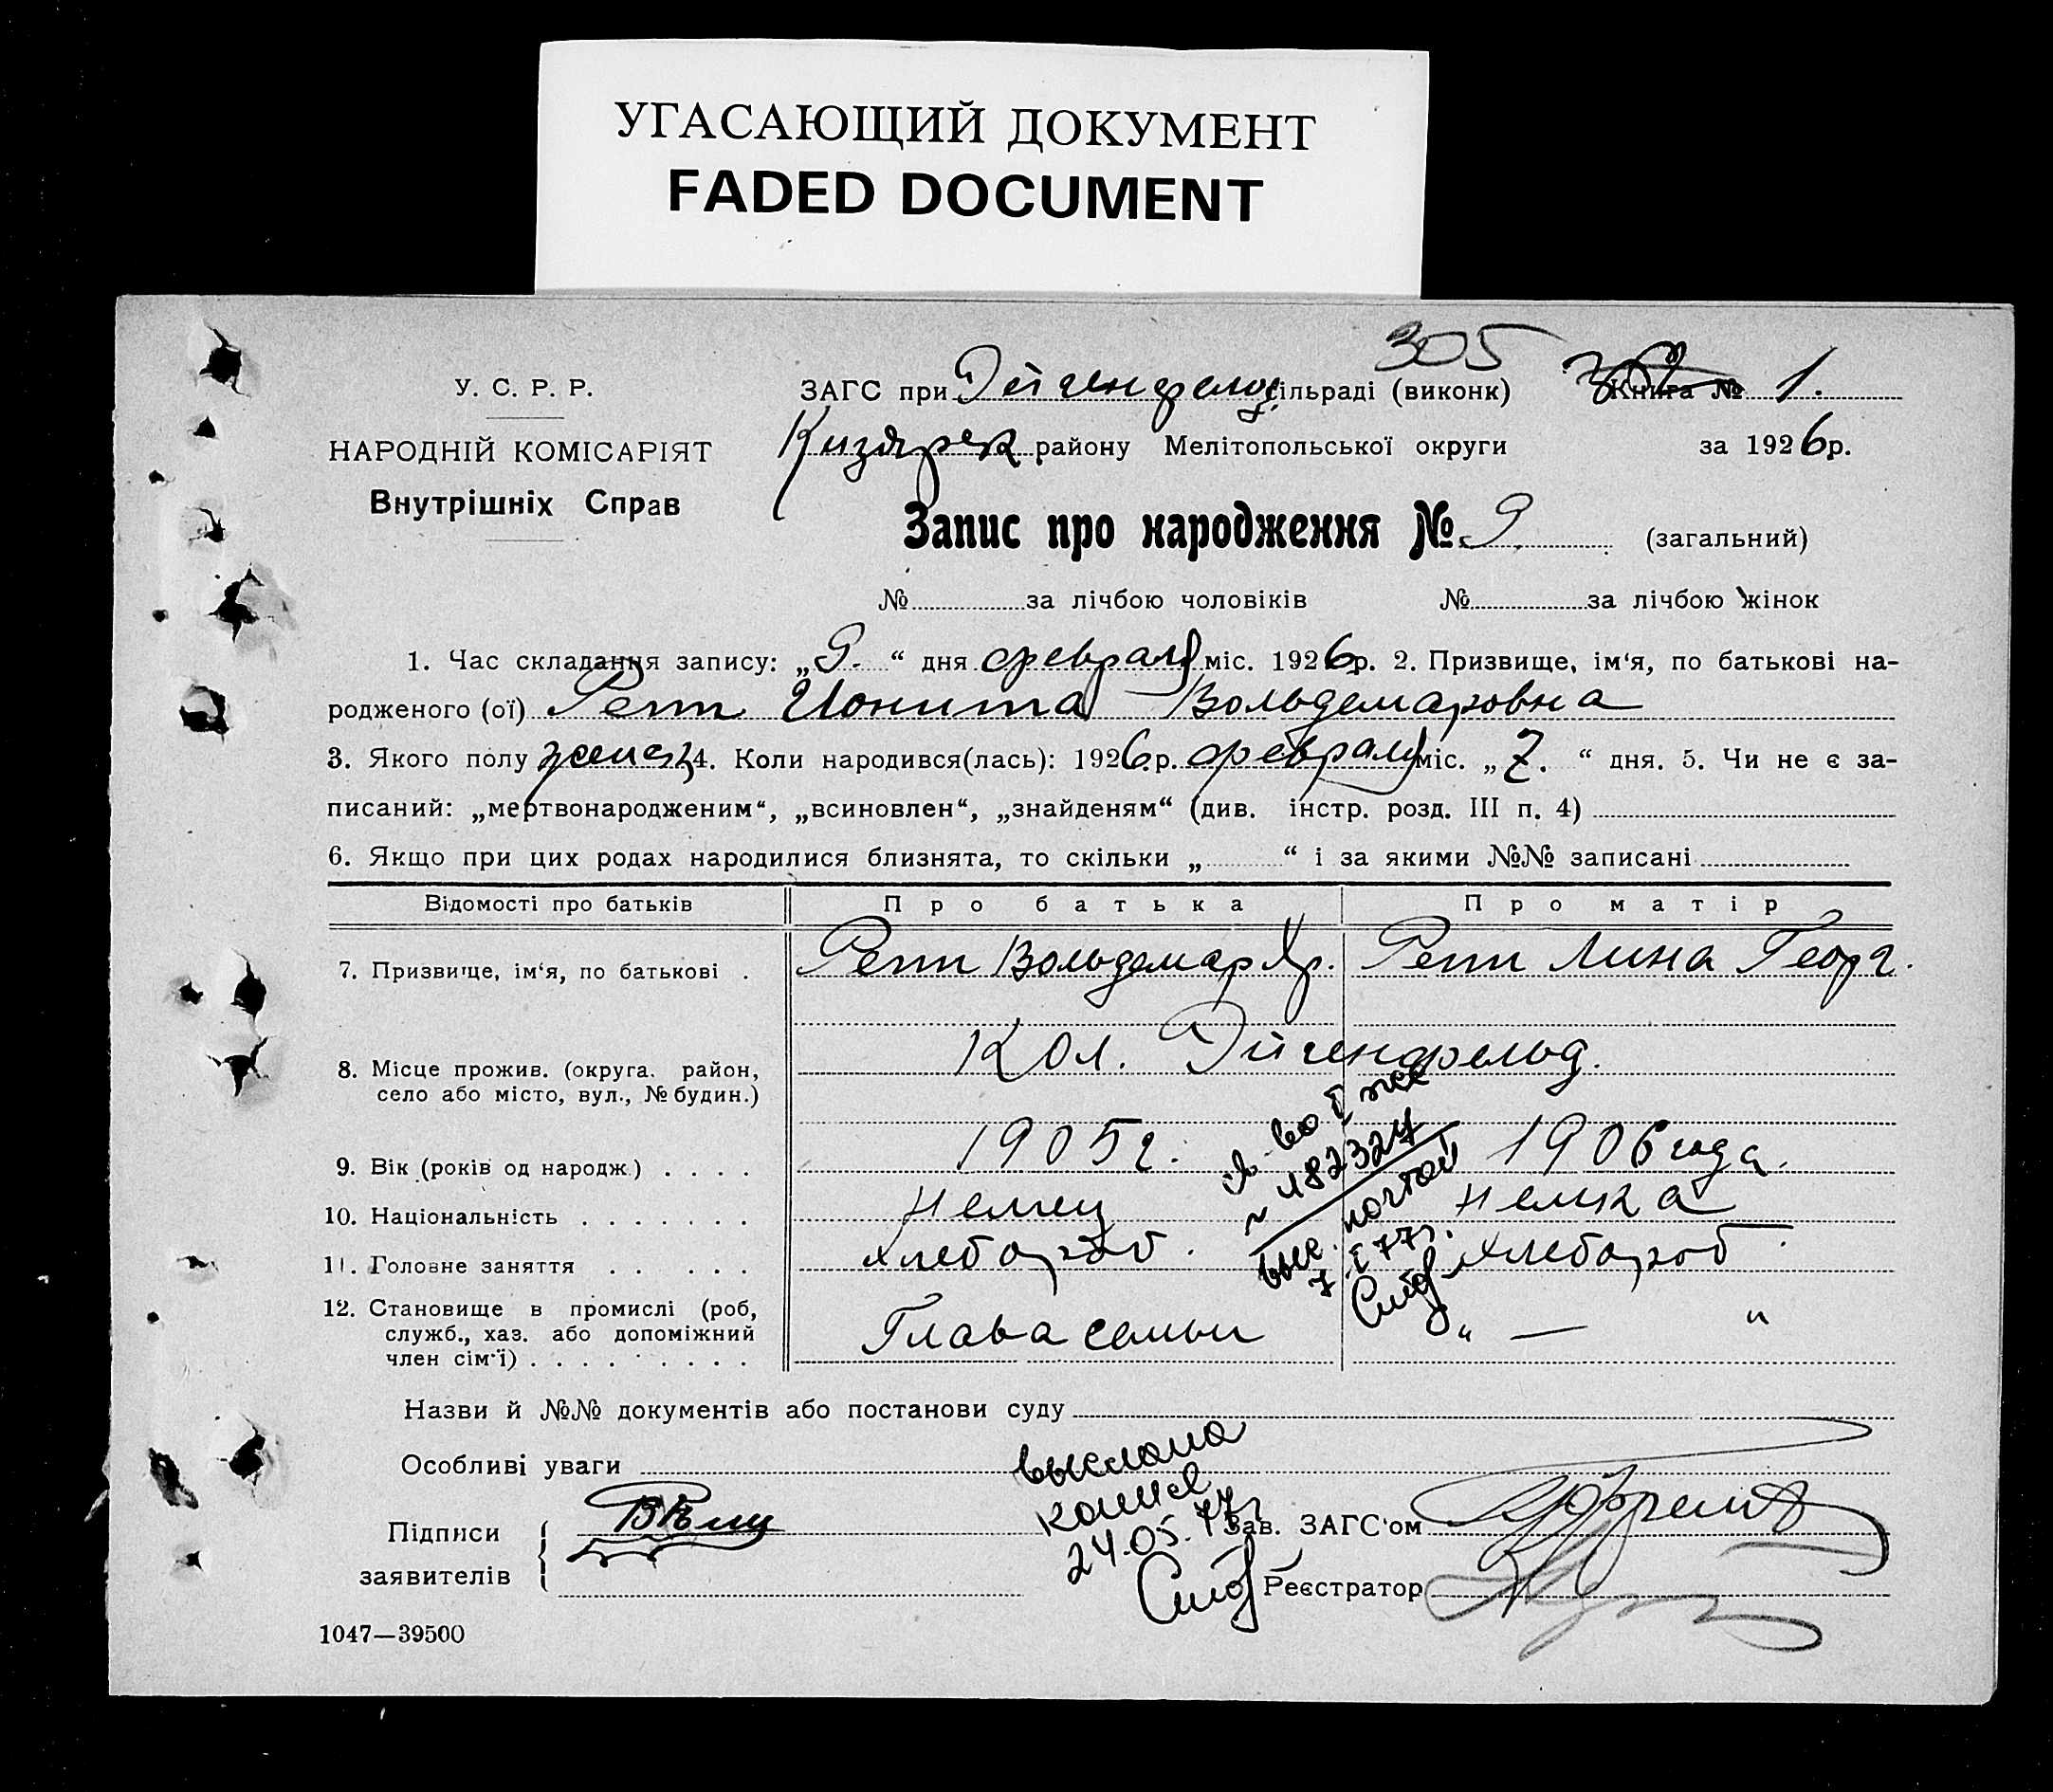 УГАСАЮЩИЙ ДОКУМЕНТ
FADED DOCUMENT
305
У. С. Р. Р.
ЗАГС при Эйгенфельд сільраді (виконк) Книга № 1.
НАРОДНІЙ КОМІСАРІЯТ
Внутрішніх Справ
Кизярск району Мелітопольської округи за 1926 р.
Запис про народження № 9. (загальний)
№ за лічбою чоловіків № за лічбою жінок
1. Час складання запису: „9.“ дня февраля міс. 1926 р. 2. Призвище, ім‘я, по батькові на-
родженого (ої) Репп Ионита Вольдемаровна
3. Якого полу женск 4. Коли народився(лась): 1926 р. февраля міс. „7.“ дня. 5. Чи не є за-
писаний: „мертвонародженим“, „всиновлен“, „знайденям“ (див. інстр. розд. III п. 4)
6. Якщо при цих родах народилися близнята, то скільки „ “ і за якими №№ записані
Відомості про батьків Про батька Про матір
7. Призвище, ім‘я, по батькові . Репп Вольдемар Репп Лина Георг.
8. Місце прожив. (округа, район,
село або місто, вул., № будин.)
Кол. Эйгенфельд.
9. Вік (років од народж.) . . . . 1905 г. 1906 года.
10. Національність . . . . . . . Немец Немка
11. Головне заняття . . . . . Хлебороб. Хлебороб.
12. Становище в промислі (роб,
служб., хаз. або допоміжний
член сім‘ї) . . . . . . . . .
Глава семьи „ — “
№ 182324
выс. почтой
7. I 77г.
Назви й №№ документів або постанови суду
Особливі уваги
выслана
копия
24.05.77г
Підписи
заявителів
Зав. ЗАГС‘ом
Реєстратор
1047—39500